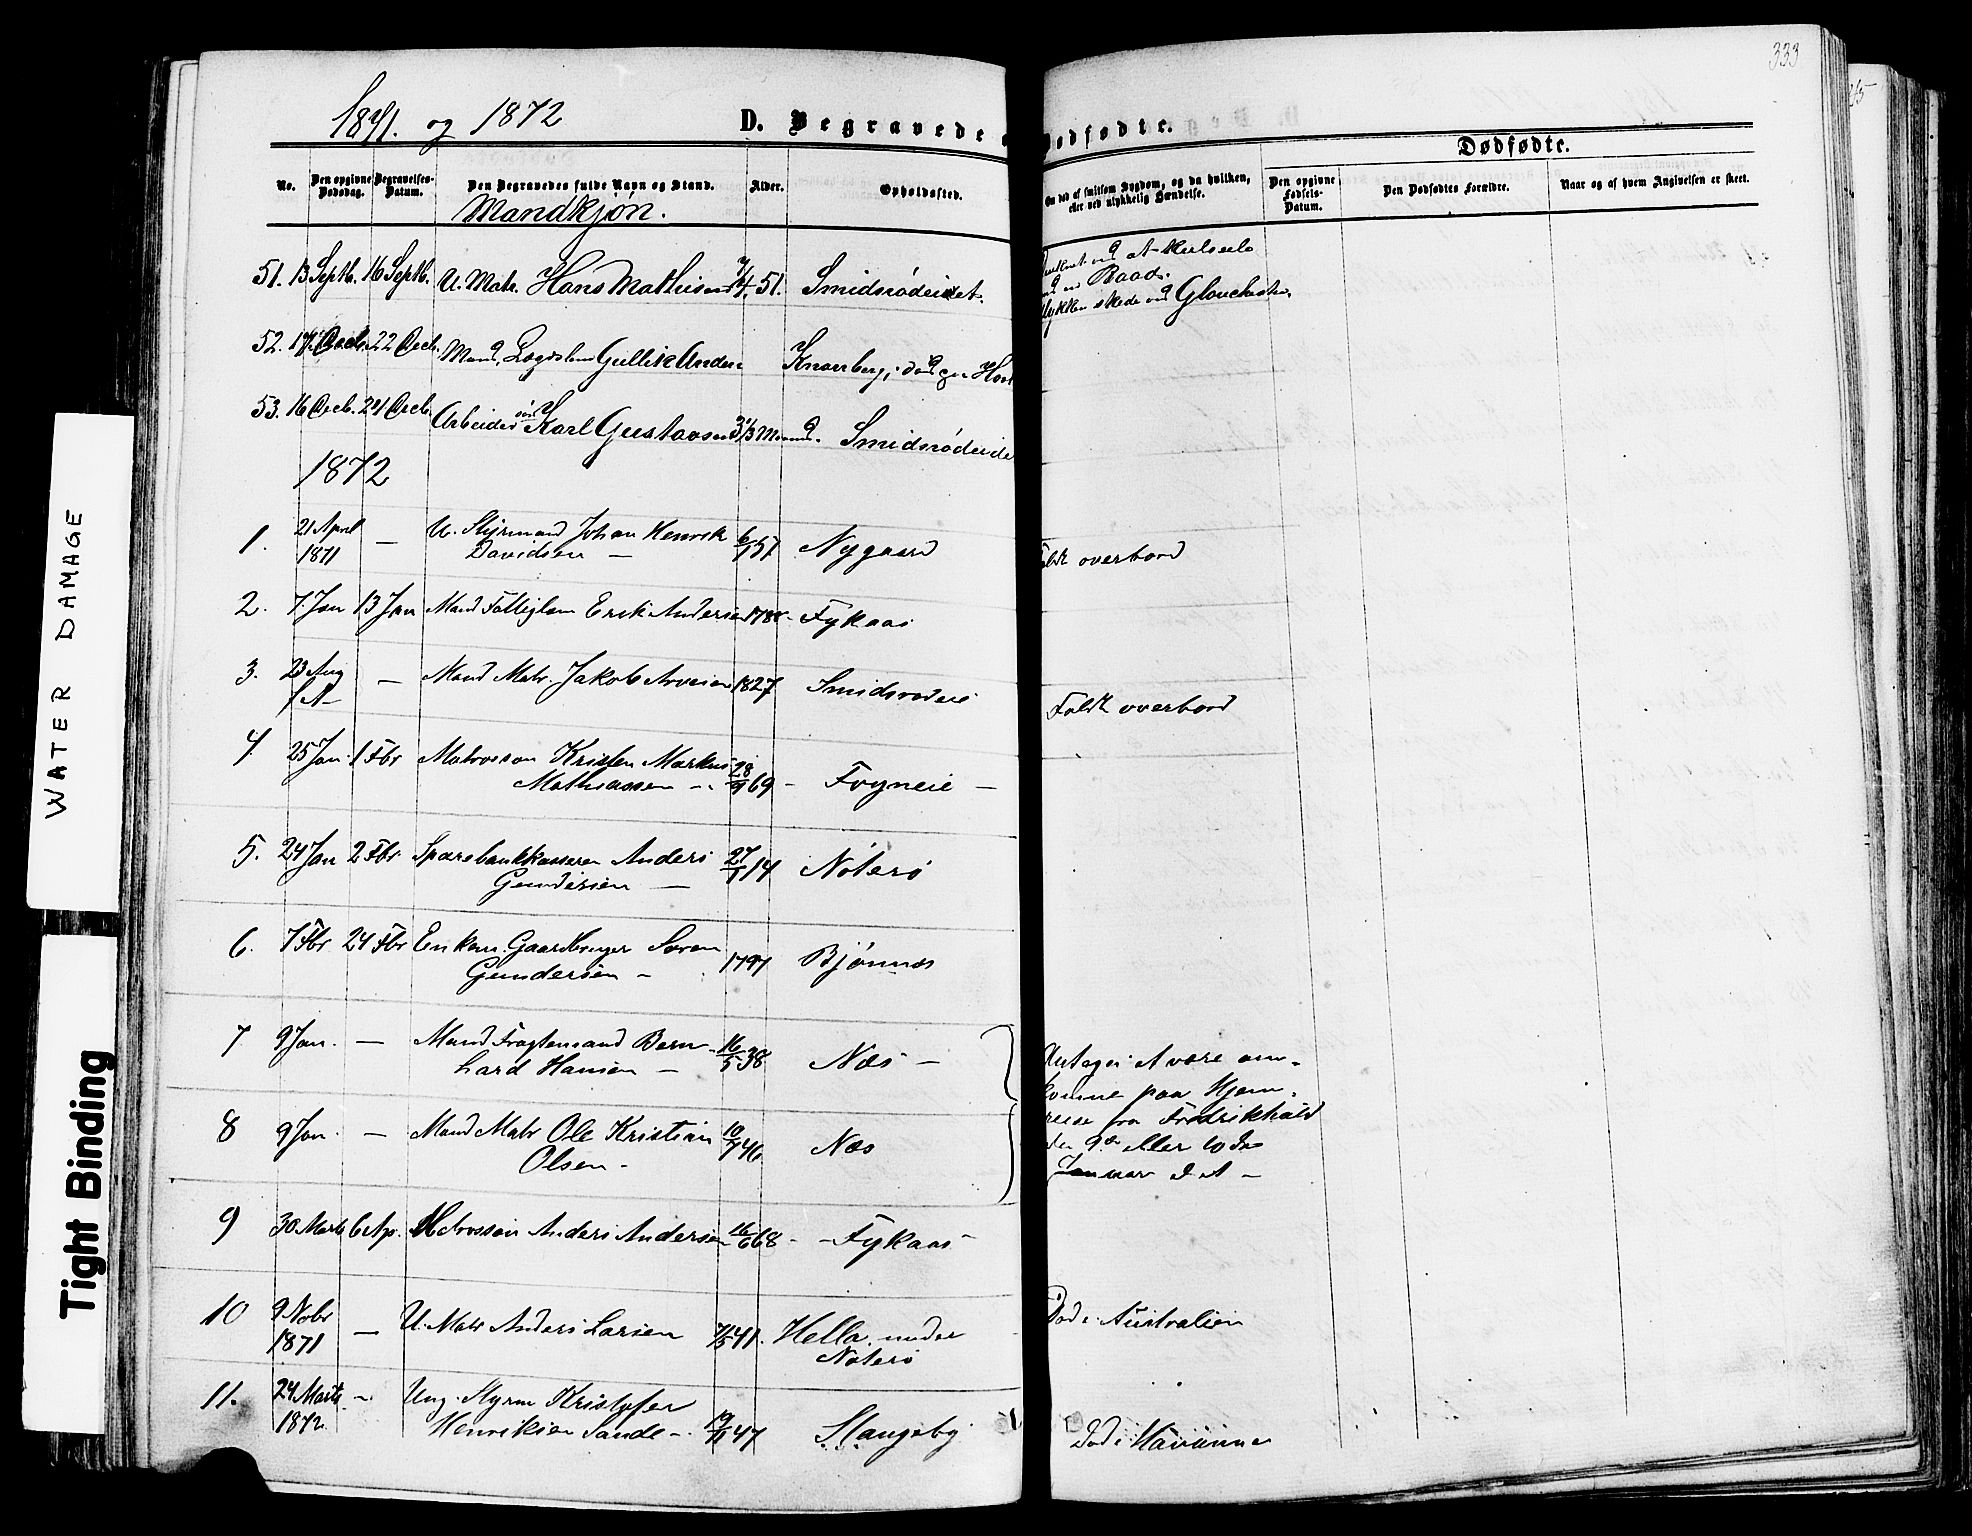 333
1871. og 1872
D. Begravede o
Dødfødte.
Dødfødte.
No.
Den opgivne Dødsdag.
Begravelses-Datum.
Den Begravedes fulde Navn og Stand.
Alder.
Opholdssted.
Om død af smitsom Sygdom, og da hvilken, eller ved ulykkelig Hændelse.
Den opgivne Fødsels-Datum.
Den Dødfødtes Forældre.
Naar og af hvem Angivelsen er skeet.
Mandkjøn.
51. 13 Septb. 16 Septb. U. Matr. Hans Mathisen 51. Smidsrødeiet.
ved at Kulseile
en Baad.
skede ved Glouchester
52. 17 Decb. 22 Decb. Mand, Lægdslem Gullik Anders Knarberg,
53. 16 Decb. 24 Decb. Arbeider søn Karl Gustavsen 3 1/3 Maaned. Smidsrødeie
1872
1. 21 April 1871 — U. Styrmand Johan Henrik Davidsen — 57 Nygaard
Faldt overbord
2. 7. Jan 13 Jan Mand Fattiglem Erik Andersen 1788 - Fykaas
3. 23 Aug f A — Mand Matr. Jakob Arvesen 1827 Smidsrødeie
Faldt overbord
4. 25 Jan. 1 Fbr Matrossøn Kristen Markus Mathiassen — 28/9 69 - Fogneie —
5. 24 Jan 2 Fbr. Sparebankkasseren Anders Gundersen — 27/7 14 Nøterø
6. 7 Fbr 24 Fbr Enkem. Gaardbruger Søren Gundersen — 1797 Bjønnes
7 9 Jan. — Mand Fragtemand Bernhard Hansen — 16/5 38 Næs —
8 9 Jan. — Mand Matr Ole Kristian Olsen — 10/7 46. Næs
Antages at være om-
komne paa Hjem-
reise fra Fredrikhald
den 9de eller 10de
Januar d. A —
9 30 Marts 6 Ap. Matrossøn Anders Andersen 16/6 68 - Fykaas -
10 9 Nobr 1871 — U. Matr Anders Larsen 7/5 41. Hella under Nøterø
Død i Australien
11. 24 Marts 1872. — Ung. Styrm Kristofer Henriksen Sande — 19/11 47 Stangeby
Død i Havanna
WATER DAMAGE
Tight Binding